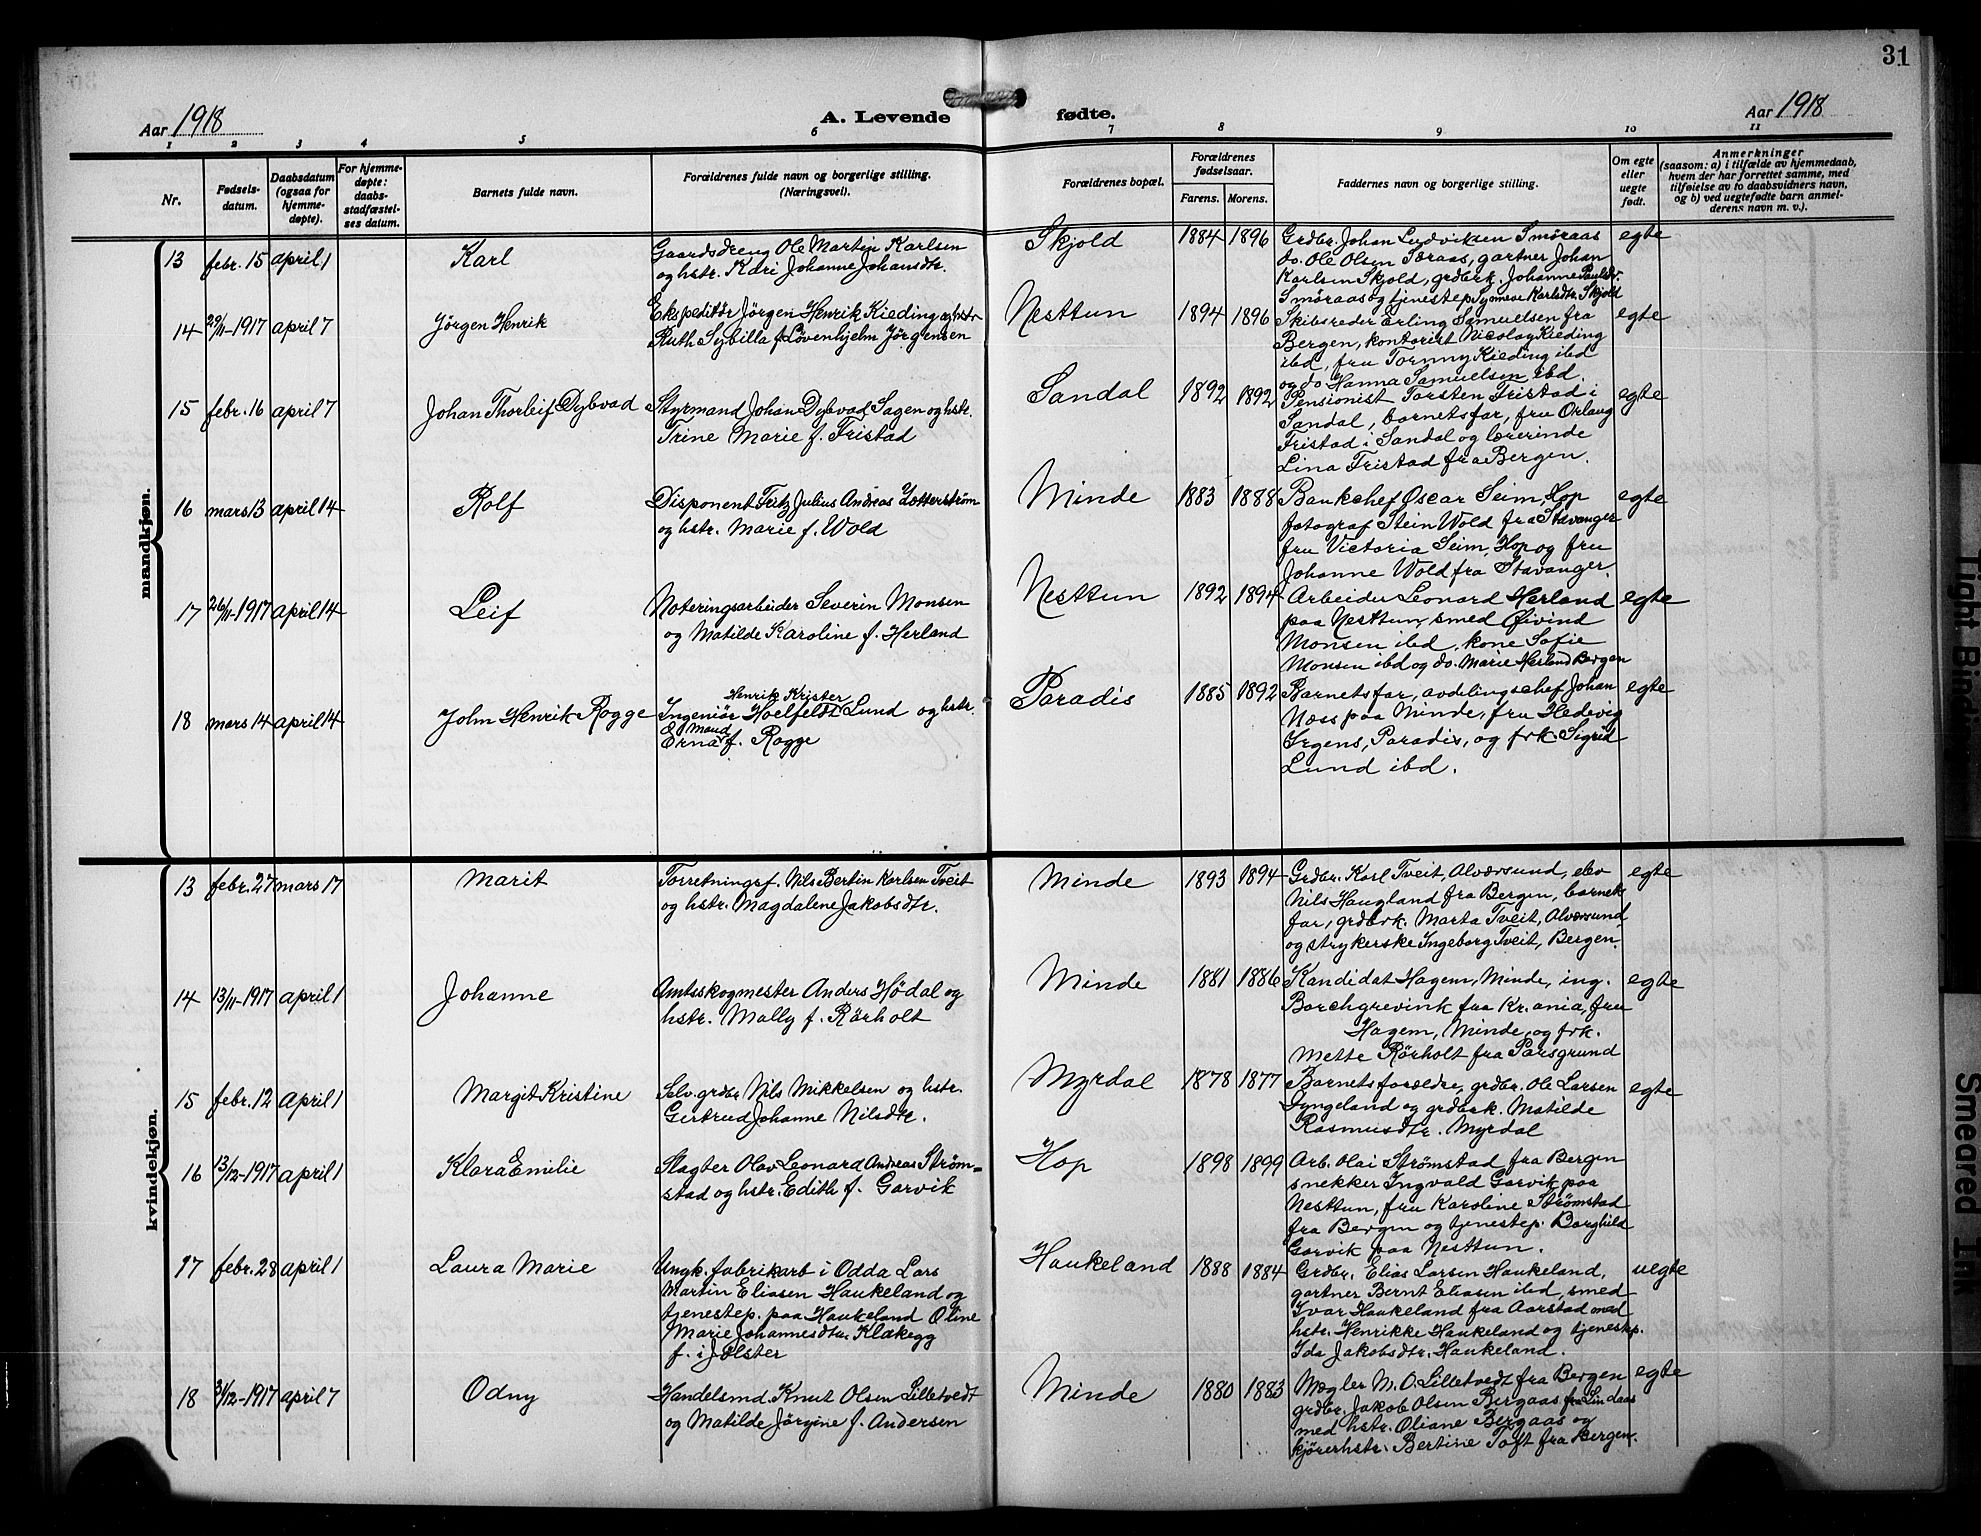 31
Aar 1918
A. Levende fødte.
Aar 1918
1 2 3 4 5 6 7 8 9 10 11
Nr.
Fødsels-
datum.
Daabsdatum
(ogsaa for
hjemme-
døpte).
For hjemme-
døpte:
daabs-
stadfæstel-
ses datum.
Barnets fulde navn.
Forældrenes fulde navn og borgerlige stilling.
(Næringsvei).
Forældrenes bopæl.
Forældrenes
fødselsaar.
Farens. Morens.
Faddernes navn og borgerlige stilling.
Om egte
eller
uegte
født.
Anmerkninger
(saasom: a) i tilfælde av hjemmedaab,
hvem der har forrettet samme, med
tilføielse av to daabsvidners navn,
og b) ved uegtefødte barn anmel-
derens navn m. v.).
mandkjøn.
13 febr. 15 april 1 Karl
Gaardsdreng Ole Martin Karlsen
og hstr. Kari Johanne Johansdtr.
Skjold 1884 1896
Grdbr. Johan Ludviksen Smöraas
do. Ole Olsen Söraas, gartner Johan
Karlsen Skjold, grdbrk. Johanne Paulsdtr.
Smöraas og tjenestep. Synneve Karlsdtr. Skjold
egte
14 29/11-1917 april 7 Jörgen Henrik
Ekspeditör Jörgen Henrik Kieding og hstr.
Ruth Sybilla f. Løvenhjelm Jörgensen
Nesttun 1894 1896
Skibsreder Erling Samuelsen fra
Bergen, kontorist Nicolay Kieding
ibd, fru Tommy Kieding ibd
og do Hanna Samuelsen ibd.
egte
15 febr. 16 april 7 Johan Thorleif Dybvad
Styrmand Johan Dybvad Sagen og hstr.
Trine Marie f. Tristad
Sandal 1892 1892
Pensionist Torsten Tristad i
Sandal, barnets far, fru Orlaug
Tristad i Sandal og lærerinde
Lina Tristad fra Bergen.
egte
16 mars 13 april 14 Rolf
Disponent Fritz Julius Andreas Zetterström
og hstr. Marie f. Wold
Minde 1883 1888
Bankchef Oscar Seim Hop
fotograf Stein Wold fra Stavanger
fru Victoria Seim, Hop og fru
Johanne Wold fra Stavanger.
egte
17 26/11-1917 april 14 Leif
Noteringsarbeider Severin Monsen
og Matilde Karoline f. Herland
Nesttun 1892 1894
Arbeider Leonard Herland
paa Nesttun, smed Øivind
Monsen ibd, kone Sofie
Monsen ibd og do. Marie Herland Bergen
egte
18 mars 14 april 14 John Henrik Rogge
Henrik Krister
Ingeniör Hoelfeldt Lund og hstr.
Maud
Erna f. Rogge
Paradis 1885 1892
Barnets far, avdelingschef Johan
Næss paa Minde, fru Hedevig
Irgens, Paradis, og frk. Sigrid
Lund ibd.
egte
kvindekjøn.
13 febr. 27 mars 17 Marit
Forretningsf. Nils Bertin Karlsen Tveit
og hstr. Magdalene Jakobsdtr.
Minde 1893 1894
Grdbr. Karl Tveit, Alversund, elev
Nils Haugland fra Bergen, barnets
far, grdbrk. Marta Tveit, Alversund
og strykerske Ingeborg Tveit, Bergen.
egte
14 13/11-1917 april 1 Johanne
Amtsskogmester Anders Hødal og
hstr. Mally f. Rörholt
Minde 1881 1886
Kandidat Hagem, Minde, ing.
Borchgrevink fra Kr.ania, fru
Hagem, Minde, og frk.
Mette Rörholt fra Porsgrund
egte
15 febr. 12 april 1 Margit Kristine
Selv. grdbr. Nils Mikkelsen og hstr.
Gertrud Johanne Nilsdtr.
Myrdal 1878 1877
Barnets forældre, grdbr. Ole Larsen
Lyngeland og grdbrk. Matilde
Rasmusdtr. Myrdal
egte
16 13/12-1917 april 1 Klara Emilie
Slagter Olav Leonard Andreas Strøm-
stad og hstr. Edith f. Garvik
Hop 1898 1899
Arb. Olai Strømstad fra Bergen
snekker Ingvald Garvik paa
Nesttun, fru Karoline Strømstad
fra Bergen og tjenestep. Borghild
Garvik paa Nesttun.
17 febr. 28 april 1 Laura Marie
Ungk. fabrikarb i Odda Lars
Martin Eliasen Haukeland og
tjenestep. paa Haukeland Oline
Marie Johannesdtr. Klakegg
f. i Jølster
Haukeland 1888 1884
Grdbr. Elias Larsen Haukeland,
gartner Bernt Eliasen ibd, smed
Ivar Haukeland fra Aarstad med
hstr. Henrikke Haukeland og tjenestep.
Ida Jakobsdtr. Haukeland.
uegte
18 31/12-1917 april 7 Odny
Handelsmd. Knut Olsen Lilletvedt
og Matilde Jörgine f. Andersen
Minde 1880 1883
Mægler M. O. Lilletvedt fra Bergen
grdbr. Jakob Olsen Bergaas fra Lindaas
med hstr. Oliane Bergaas og
kjörerhstr. Bertine Toft fra Bergen.
egte
Tight Binding
Smeared Ink